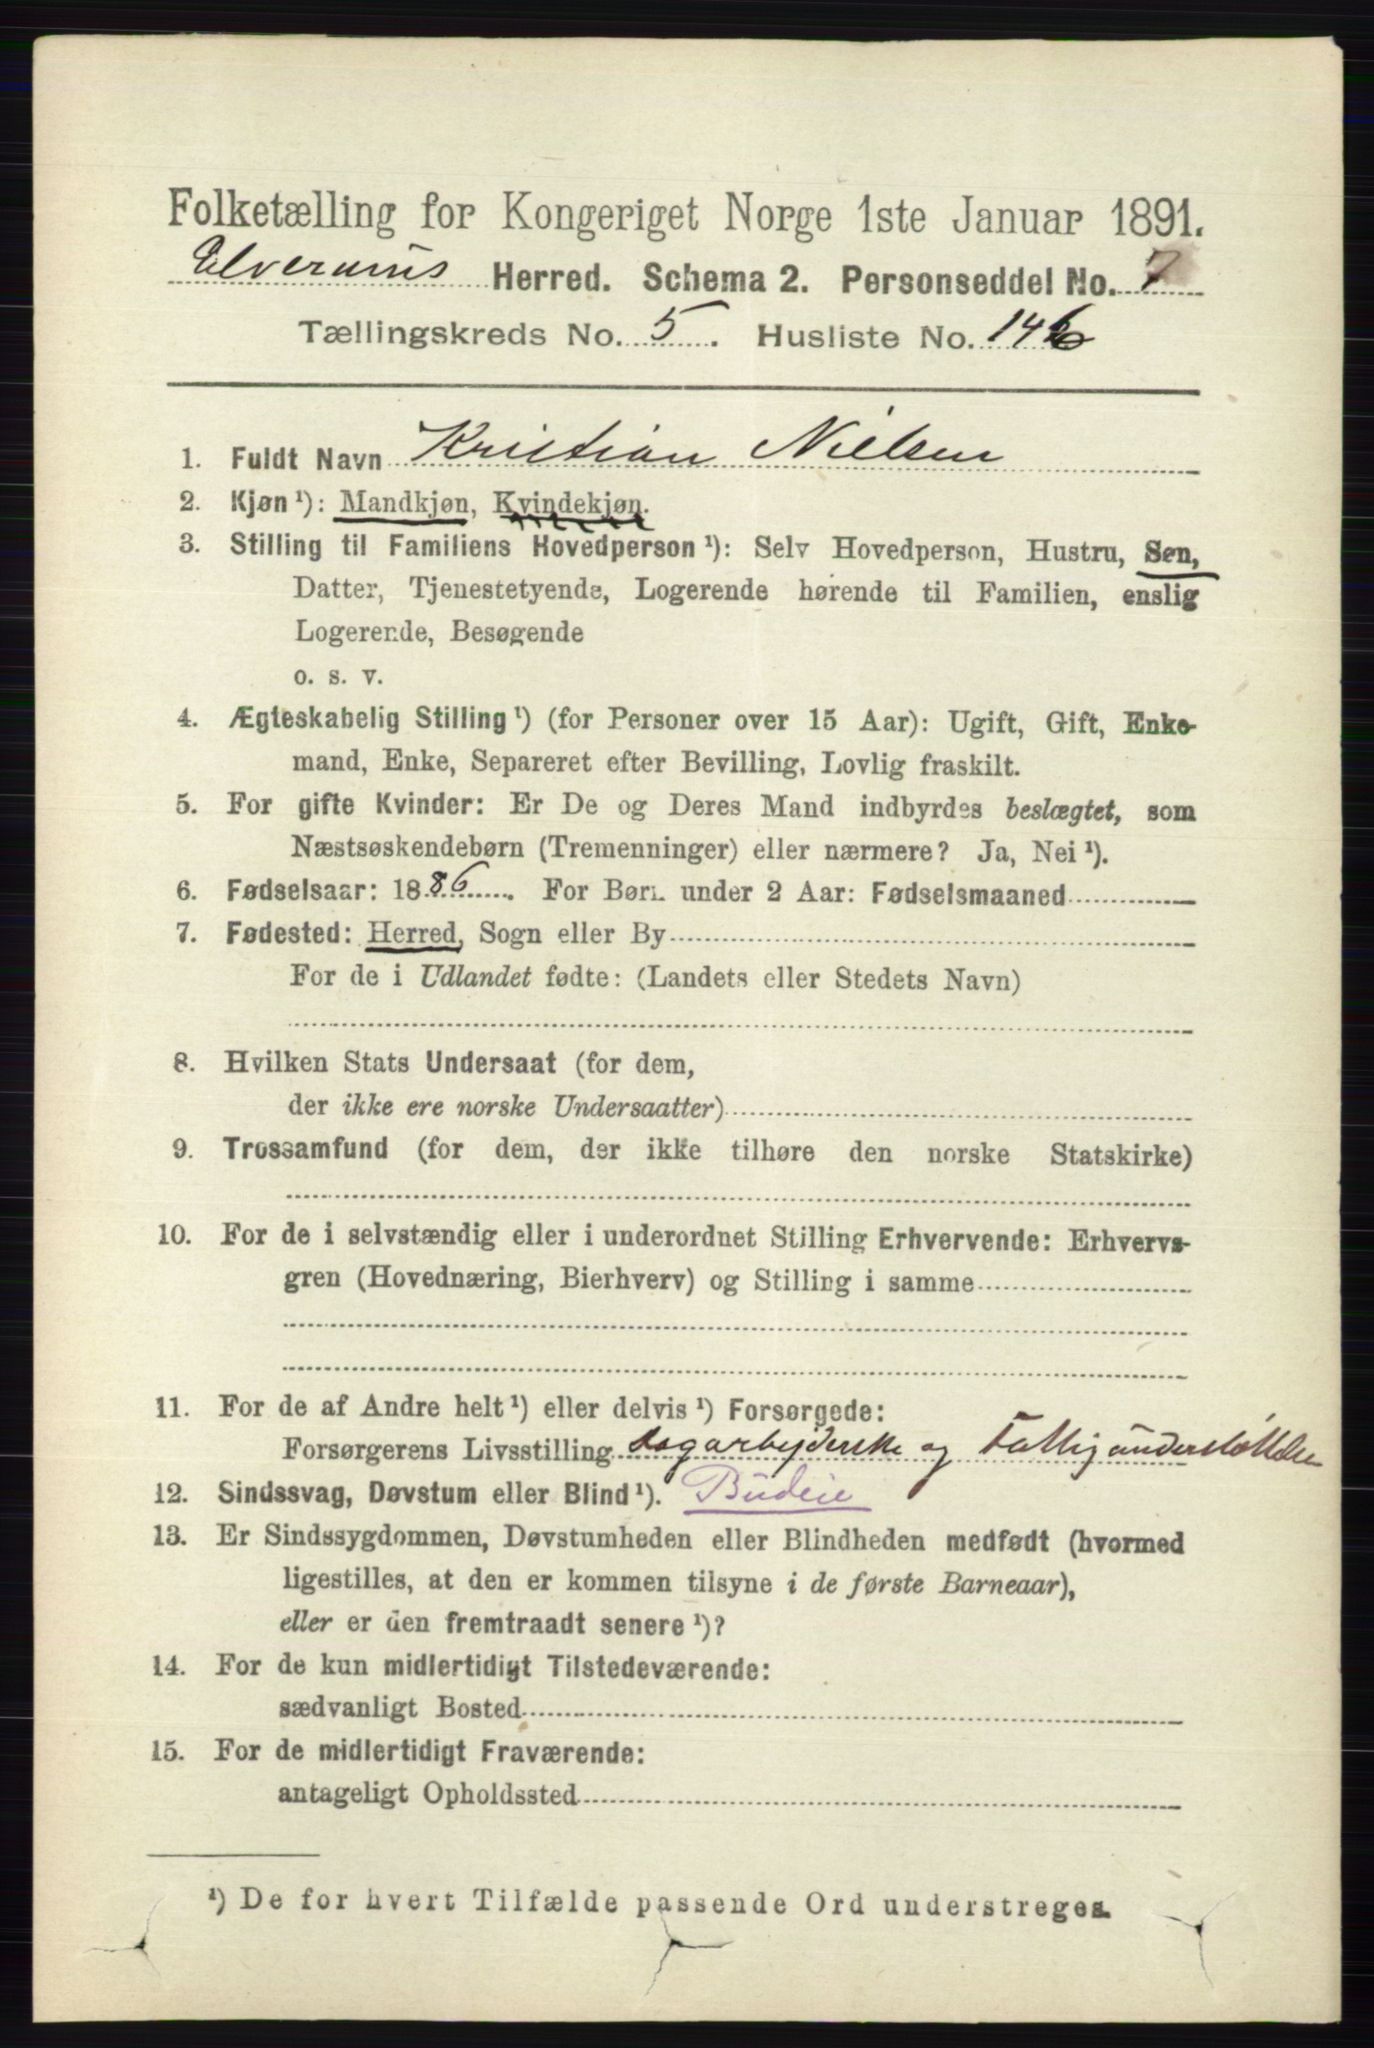 Folketælling for Kongeriget Norge 1ste Januar 1891.
Elverums Herred. Schema 2. Personseddel No. 7
Tællingskreds No. 5. Husliste No. 146
1. Fuldt Navn Kristian Nielsen
2. Kjøn ¹): Mandkjøn, Kvindekjøn.
3. Stilling til Familiens Hovedperson ¹): Selv Hovedperson, Hustru, Søn,
Datter, Tjenestetyende, Logerende hørende til Familien, enslig
Logerende, Besøgende
o. s. v.
4. Ægteskabelig Stilling ¹) (for Personer over 15 Aar): Ugift, Gift, Enke-
mand, Enke, Separeret efter Bevilling, Lovlig fraskilt.
5. For gifte Kvinder: Er De og Deres Mand indbyrdes beslægtet, som
Næstsøskendebørn (Tremenninger) eller nærmere? Ja, Nei ¹).
6. Fødselsaar: 1886. For Børn under 2 Aar: Fødselsmaaned
7. Fødested: Herred, Sogn eller By
For de i Udlandet fødte: (Landets eller Stedets Navn)
8. Hvilken Stats Undersaat (for dem,
der ikke ere norske Undersaatter)
9. Trossamfund (for dem, der ikke tilhøre den norske Statskirke)
10. For de i selvstændig eller i underordnet Stilling Erhvervende: Erhvervs-
gren (Hovednæring, Bierhverv) og Stilling i samme
11. For de af Andre helt ¹) eller delvis ¹) Forsørgede:
Forsørgerens Livsstilling dagarbejderske og Fattigunderstøttelse
12. Sindssvag, Døvstum eller Blind ¹). Budeie
13. Er Sindssygdommen, Døvstumheden eller Blindheden medfødt (hvormed
ligestilles, at den er kommen tilsyne i de første Barneaar),
eller er den fremtraadt senere ¹)?
14. For de kun midlertidigt Tilstedeværende:
sædvanligt Bosted
15. For de midlertidigt Fraværende:
antageligt Opholdssted
¹) De for hvert Tilfælde passende Ord understreges.